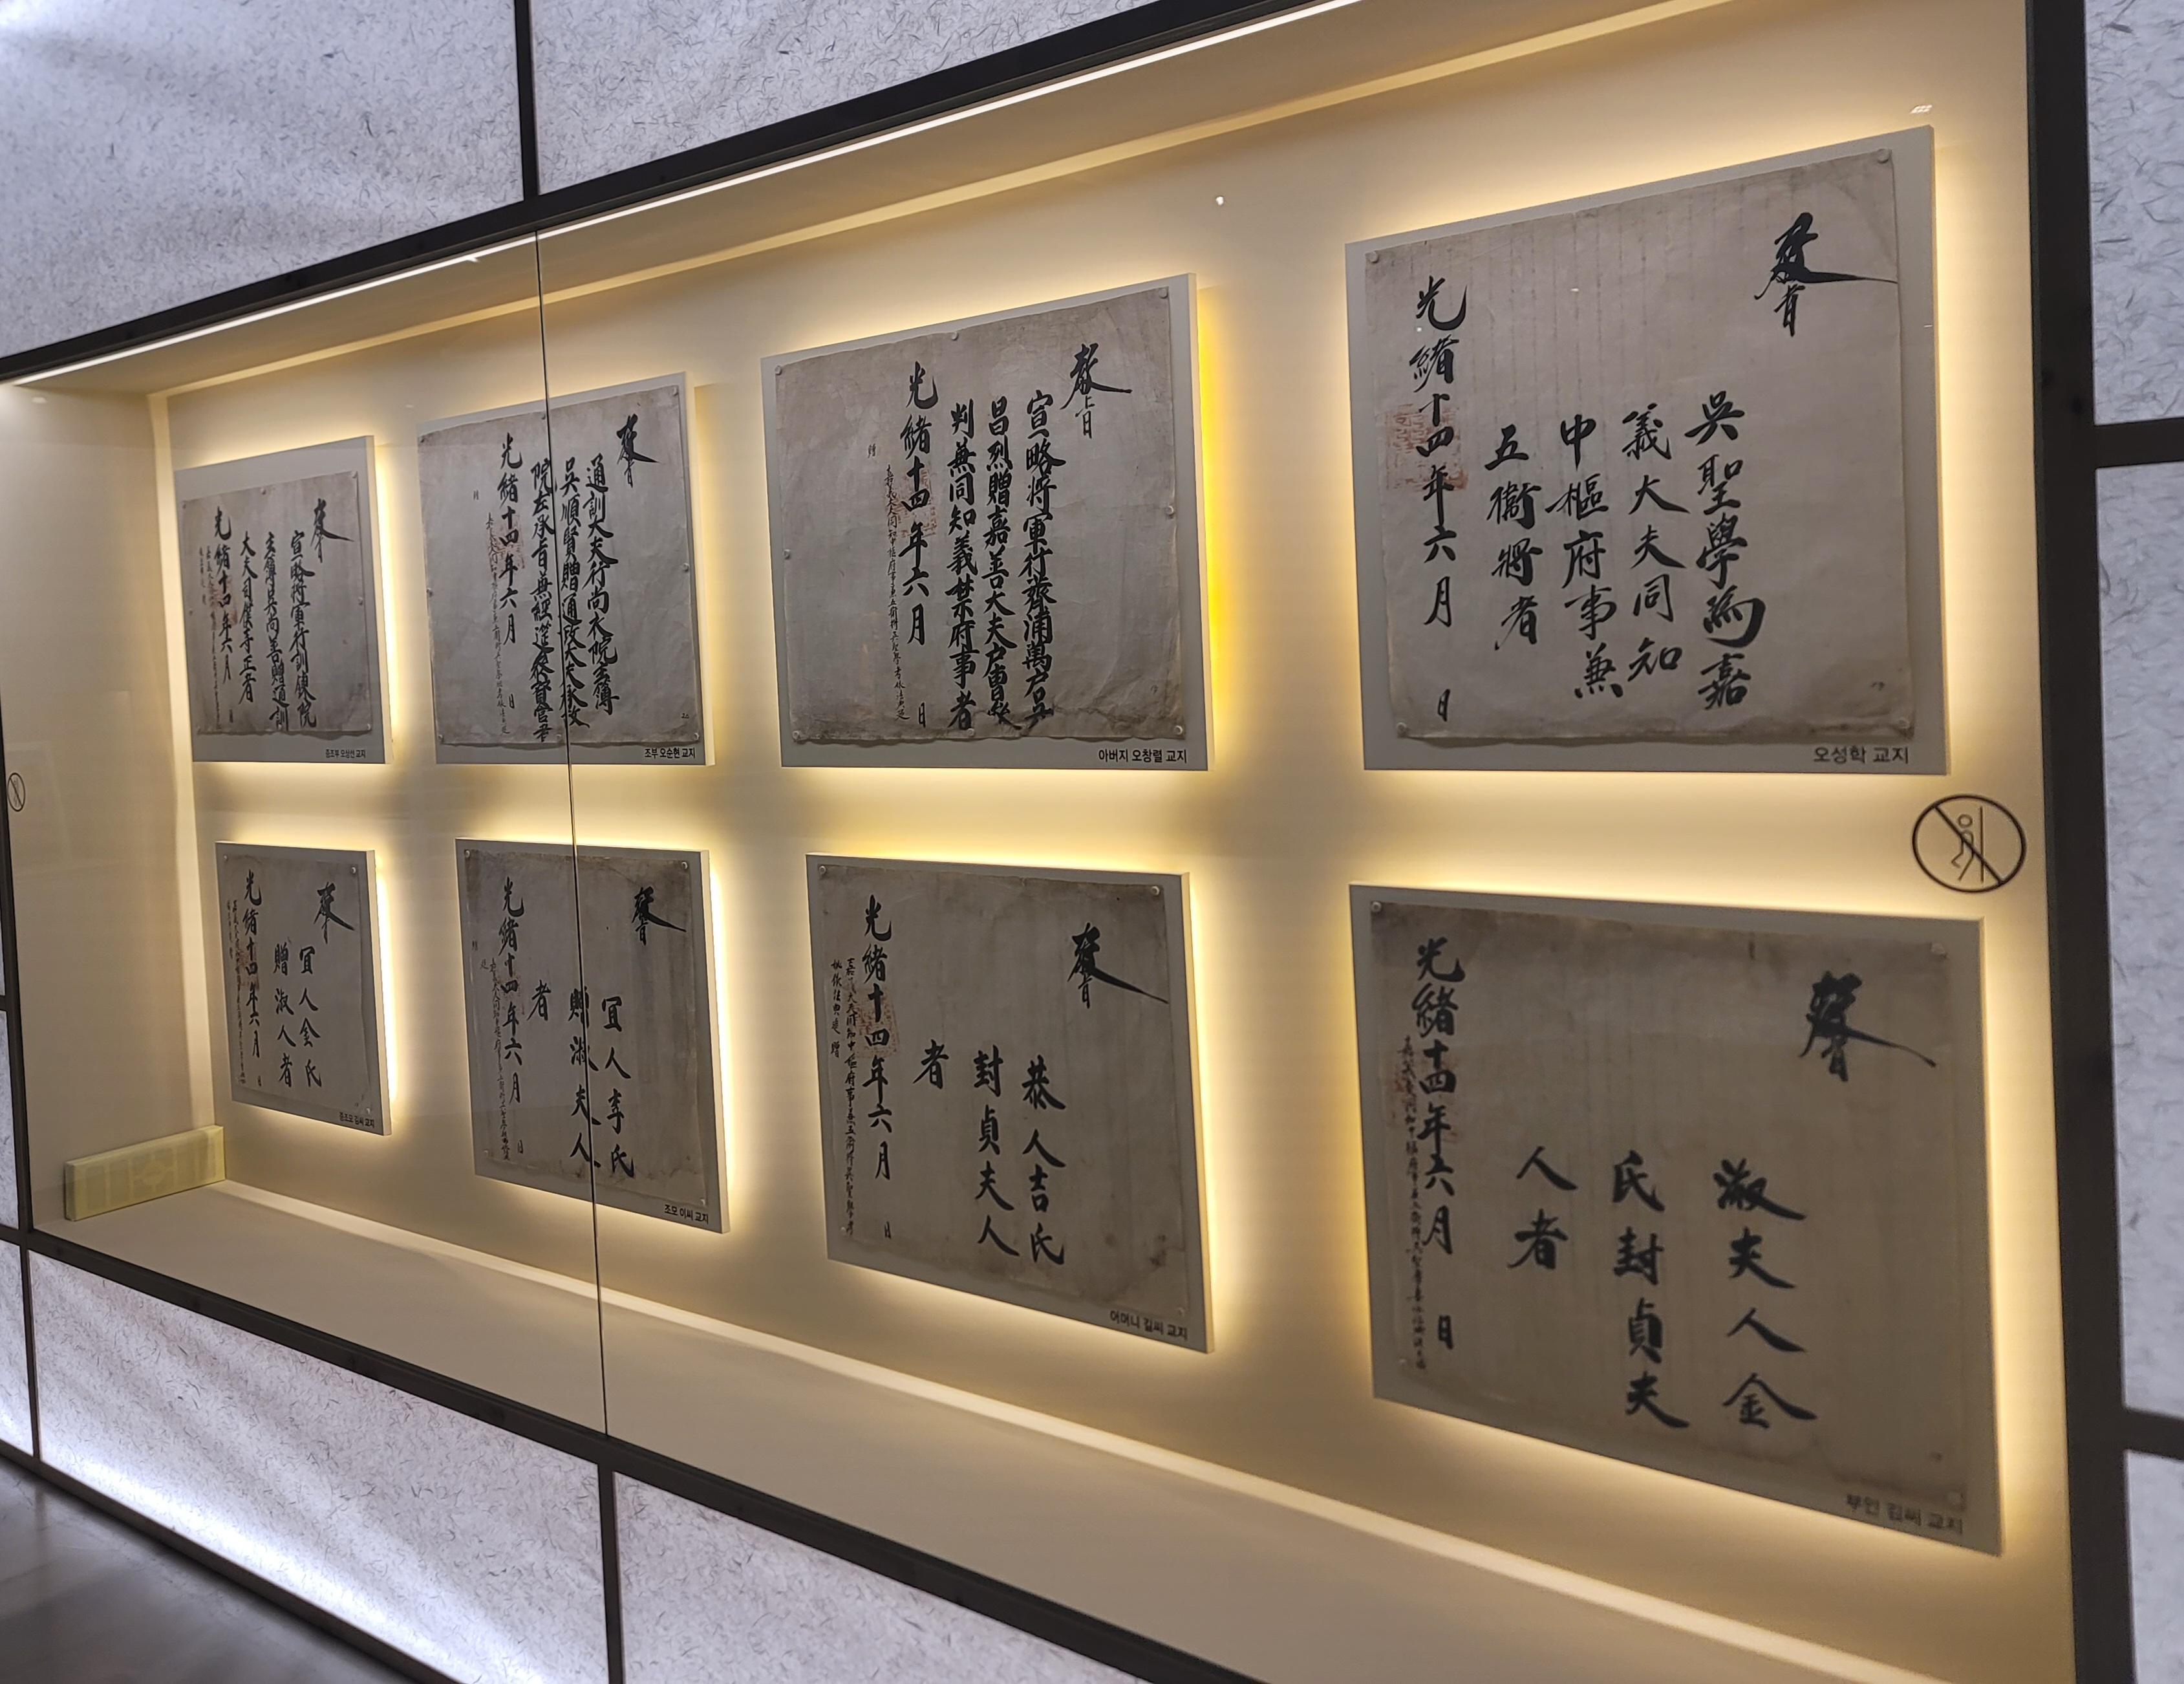 敎旨
吳聖學爲嘉
義大夫同知
中樞府事兼
五衛將者
光緖十四年六月 日
오성학 교지
敎旨
宣略將軍行薺浦萬戶吳
昌烈贈嘉善大夫戶曹參
判兼同知義禁府事者
光緖十四年六月 日
贈
아버지 오창렬 교지
敎旨
通訓大夫行尙衣院主簿
吳順賢贈通政大夫承政
院左承旨兼經筵參贊官者
光緖十四年六月 日
조부 오순현 교지
敎旨
宣略將軍行訓鍊院
主簿吳尙善贈通訓
大夫司僕寺正者
光緖十四年六月 日
증조부 오상선 교지
敎旨
淑夫人金
氏封貞夫
人者
光緖十四年六月 日
부인 김씨 교지
敎旨
恭人吉氏
封貞夫人
者
光緖十四年六月 日
어머니 길씨 교지
敎旨
宜人李氏
贈淑夫人
者
光緖十四年六月 日
조모 이씨 교지
敎旨
宜人金氏
贈淑人者
光緖十四年六月 日
증조모 김씨 교지